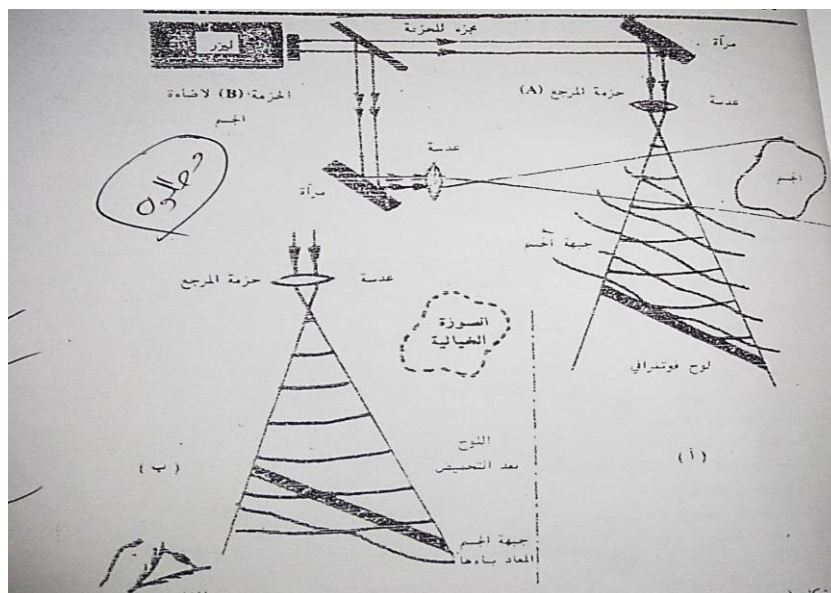 مجزء للحزمة
ليزر
مرآة
الحزمة (B) لاضاءة
الجسم
حزمة المرجع (A)
عدسة
عدسة
الجسم
مرآة
جبهة الجسم
حزمة المرجع
عدسة
الصورة
الخيالية
لوح فوتغرافي
اللوح
بعد التحميض
(أ)
(ب)
جبهة الجسم
المعاد بناءها